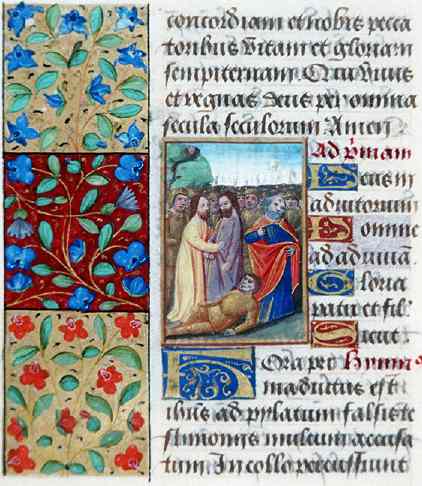 concordiam et nobis pecca
toribus vitam et gloriam
sempiternam. Qui vivis
et regnas deus per omnia
secula seculorum. Amen
Ad pmam
Deus in
adiutorium
Domine
ad adiuva
Gloria
patri et fil
Sicut
Hora pri hymnus
ma ductus est
ihus ad pylatum falsis te
stimoniis multum accusa
tum. In collo percussiunt